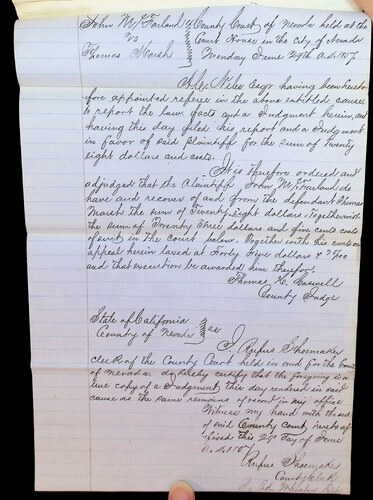 John McFarland } County Court of Nevada held at the
vs } Court House in the City of Nevada
Thomas Marsh } Monday June 29th A.D. 1857.
Niles Esqr having been hereto
fore appointed referee in the above entitled cause
to report the law, facts and a Judgment herein, and
having this day filed his report and a Judgment
in favor of said plaintiff for the sum of Twenty
eight dollars and costs.
It is therefore ordered and
adjudged that the Plaintiff John McFarland, do
have and recover of and from the defendant Thomas
Marsh the sum of Twenty eight dollars, together with
the sum of Twenty three dollars and five cents costs
of suit in the court below. Together with his costs on
appeal herein taxed at Forty Five dollars &
and that execution be awarded him therefor.
Thomas H. Caswell
County Judge
State of California }
County of Nevada } ss
I Rufus Shoemaker
clerk of the County Court held in and for the County
of Nevada. do hereby certify that the foregoing is a
true copy of a Judgment this day rendered in said
cause as the same remains of record in my office
Witness my hand with the seal
of said County Court hereto af
fixed this 29th day of June
A.D. 1857
Rufus Shoemaker
County Clerk